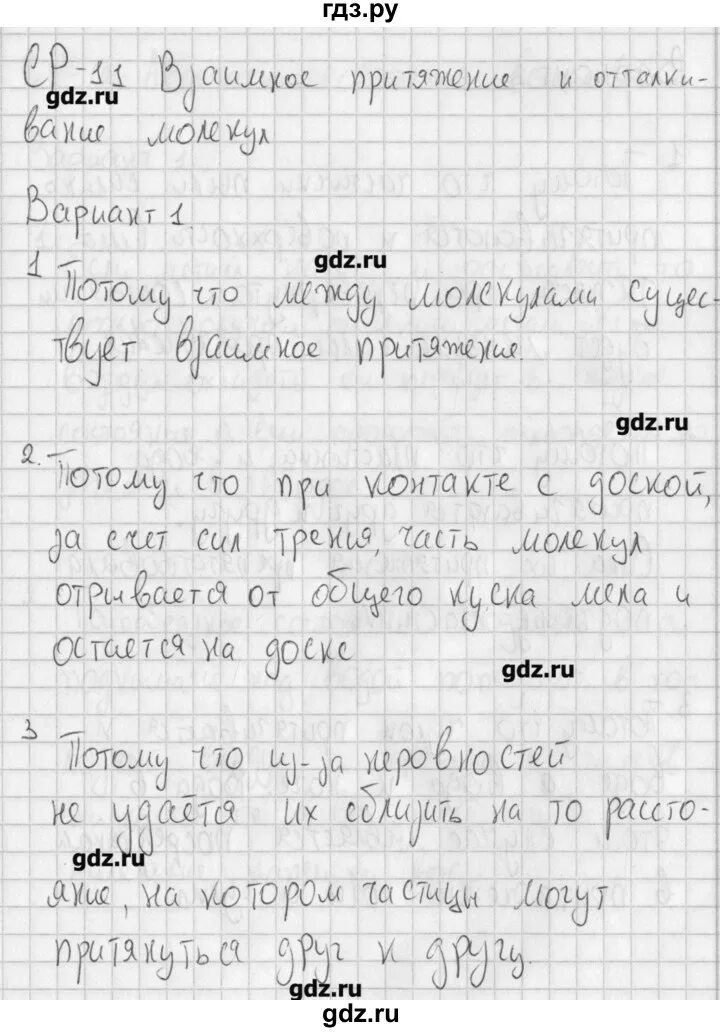 гдз.ру
СР-11 Взаимное притяжение и отталки-
gdz.ru
вание молекул
Вариант 1.
gdz.ru
1 Потому что между молекулами сущес-
твует взаимное притяжение.
gdz.ru
2. Потому что при контакте с доской,
за счет сил трения, часть молекул
отрывается от общего куска мела и
остается на доске
gdz.ru
3 Потому что из-за неровностей
не удаётся их сблизить на то рассто-
gdz.ru
яние, на котором частицы могут
притянуться друг к другу.
gdz.ru
гдз.ru